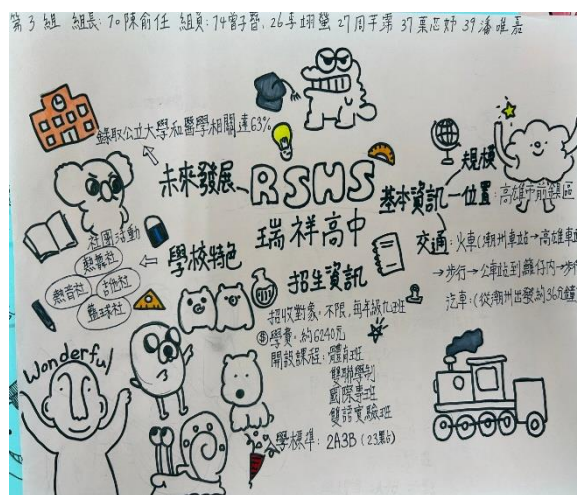 第3組 組長:10陳俞任 組員:14曾子晉.26李翊螢 27周芊霈 37葉芯妤 39潘唯嘉
錄取公立大學和醫學相關達63%
未來發展
RSHS
瑞祥高中
基本資訊
規模
位置:高雄市前鎮區
交通:火車(潮州車站→高雄車站
→步行→公車站到籬仔內→步行
汽車:(從潮州出發約36分鐘)
學校特色
社團活動
熱舞社
熱音社
吉他社
籃球社
招生資訊
招收對象:不限,每年級九班
$學費:約6240元
開設課程:體育班
雙聯學制
國際專班
雙語實驗班
學標準:2A3B(23點)
Wonderful